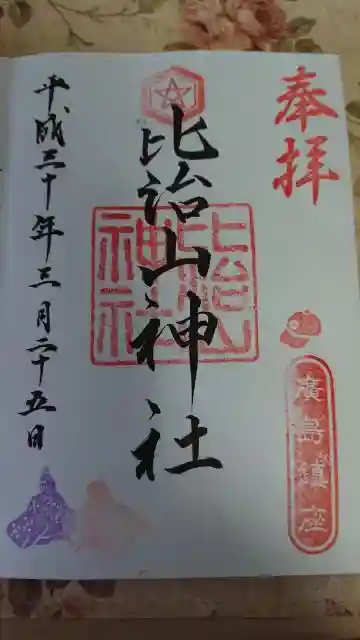 奉拝
廣島鎮座
比治山神社
比治山
神社
平成三十年三月二十五日